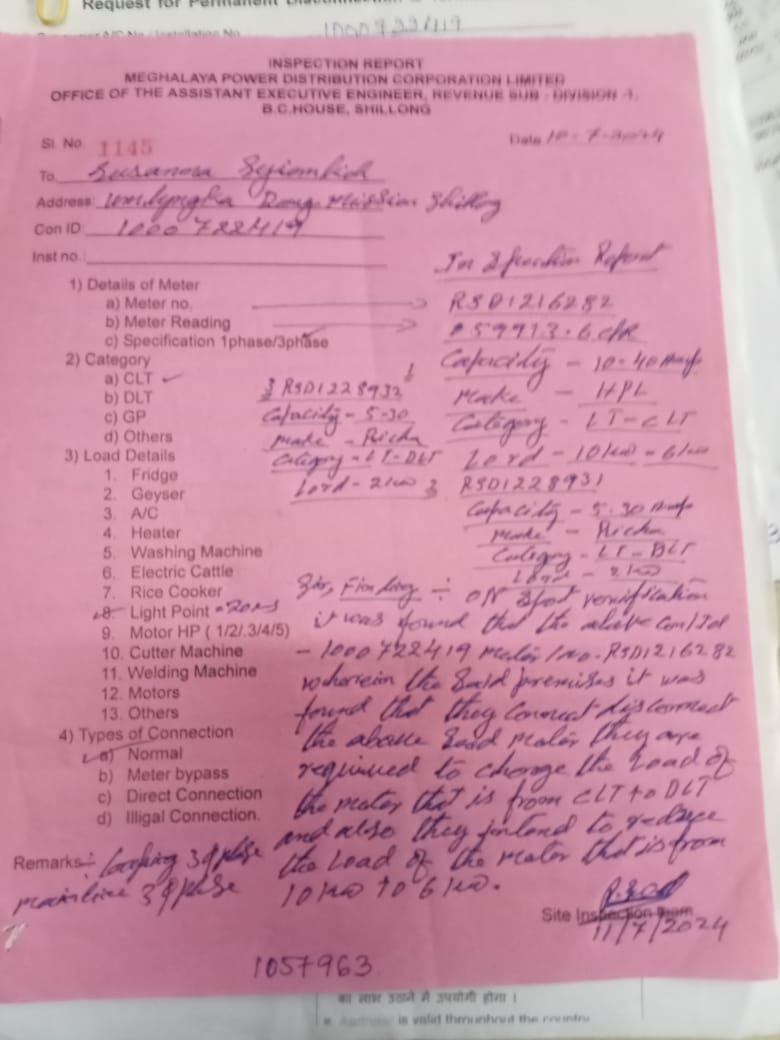 Request for Permanent
1000722419
INSPECTION REPORT
MEGHALAYA POWER DISTRIBUTION CORPORATION LIMITED
OFFICE OF THE ASSISTANT EXECUTIVE ENGINEER, REVENUE SUB - DIVISION -1,
B.C.HOUSE, SHILLONG
Sl. No. 1145
Date 10-7-2024
To
Address: Umlyngka Shillong
Con ID 1000722419
Inst no.
Inspection Report
1) Details of Meter
a) Meter no. RSD1216282
b) Meter Reading 59913.6
c) Specification 1phase/3phase
2) Category
Capacity - 10-40 Amp
a) CLT
3) RSD1228932
Make - HPL
b) DLT
Capacity - 5-30
Category - LT-CLT
c) GP
Make - Richa
Load - 10 KW - 6 KW
d) Others
Category - LT-DLT
Load - 2 KW
2) RSD1228931
3) Load Details
1. Fridge
2. Geyser
Capacity - 5-30 Amp
3. A/C
Make - Richa
4. Heater
Category - LT-DLT
5. Washing Machine
Load - 2 KW
6. Electric Cattle
7. Rice Cooker
8. Light Point
9. Motor HP ( 1/2/.3/4/5)
10. Cutter Machine
11. Welding Machine
12. Motors
13. Others
Sir, Finding ÷ ON Spot verification
it was found that the above Con/Id
- 1000722419 Meter/no. RSD1216282
wherein the said premises it was
found that they connect disconnect
the above said meter they are
required to change the Load of
the meter that is from CLT to DLT
and also they intend to reduce
the Load of the meter that is from
10 KW to 6 KW.
4) Types of Connection
a) Normal
b) Meter bypass
c) Direct Connection
d) Illigal Connection.
Remarks÷ Looping 3φ phase
mainline 3φ phase
Site Inspection Team
11/7/2024
1057963
का लाभ उठाने में उपयोगी होगा ।
is valid throughout the country